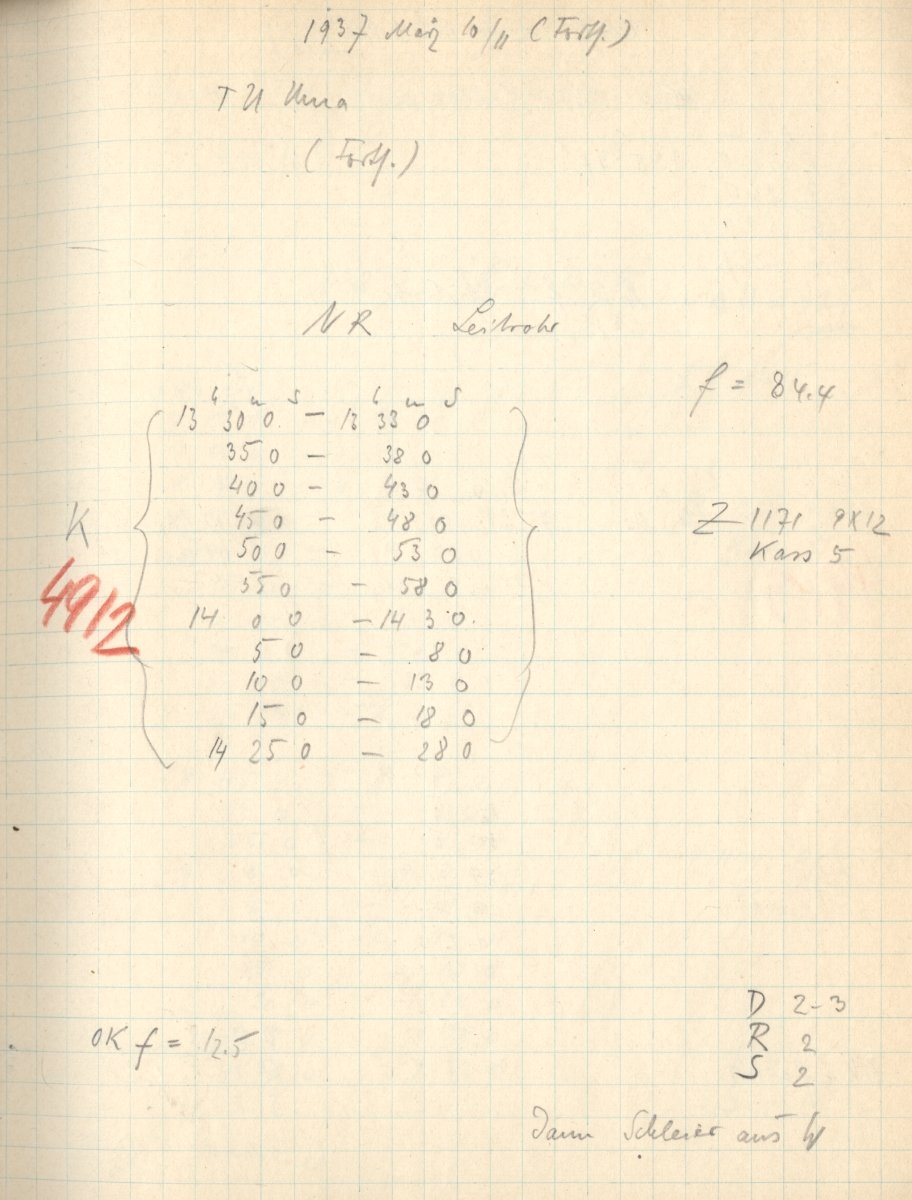 1937 März 10/11 (Forts.)
T U Uma
(Forts.)
NR Leitrohr
f = 84.4
h m s h m s
13 30 0 – 13 33 0
35 0 – 38 0
40 0 – 43 0
K 45 0 – 48 0 Z 1171 9X12
50 0 – 53 0 Kass 5
4912 55 0 – 58 0
14 0 0 – 14 3 0
5 0 – 8 0
10 0 – 13 0
15 0 – 18 0
14 25 0 – 28 0
D 2-3
OK f = 12.5 R 2
S 2
Dann Schleier aus W